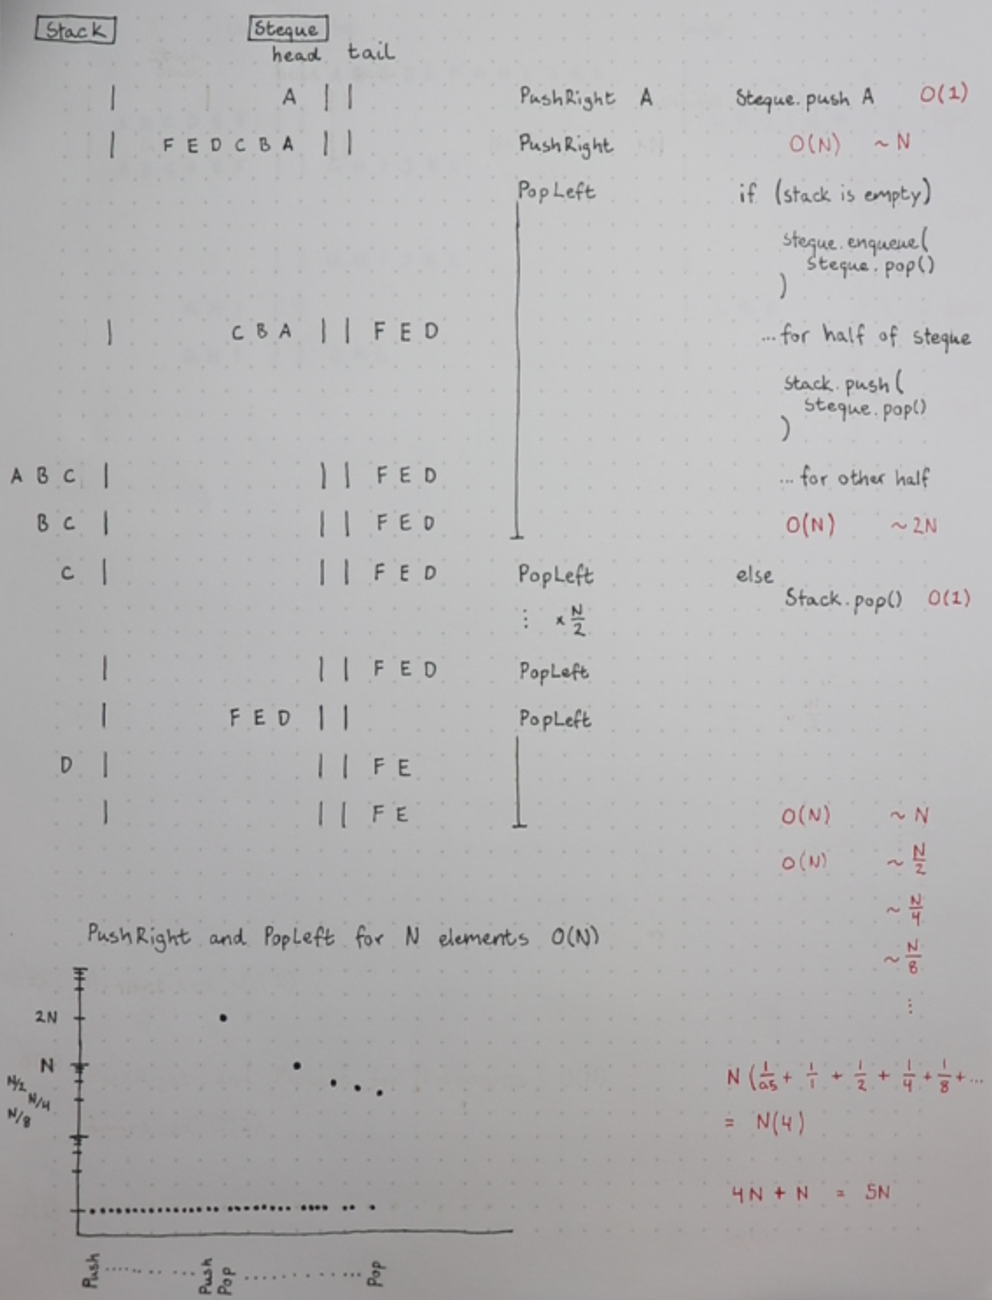 Stack Steque
head tail
| A | | PushRight A Steque.push A O(1)
| F E D C B A | | PushRight O(N) ~ N
PopLeft if (stack is empty)
steque.enqueue(
steque.pop()
)
| C B A | | F E D ...for half of steque
Stack.push(
steque.pop()
)
A B C | | | F E D ...for other half
B C | | | F E D O(N) ~2N
C | | | F E D PopLeft else
Stack.pop() O(1)
⋮ × N/2
| | | F E D PopLeft
| F E D | | PopLeft
D | | | F E
| | | F E O(N) ~ N
O(N) ~ N/2
~ N/4
PushRight and PopLeft for N elements O(N)
~ N/8
⋮
2N
N
N/2
N/4
N/8
N (1/0.5 + 1/1 + 1/2 + 1/4 + 1/8 + ...
= N(4)
4N + N = 5N
Push ........... Push Pop ............... Pop